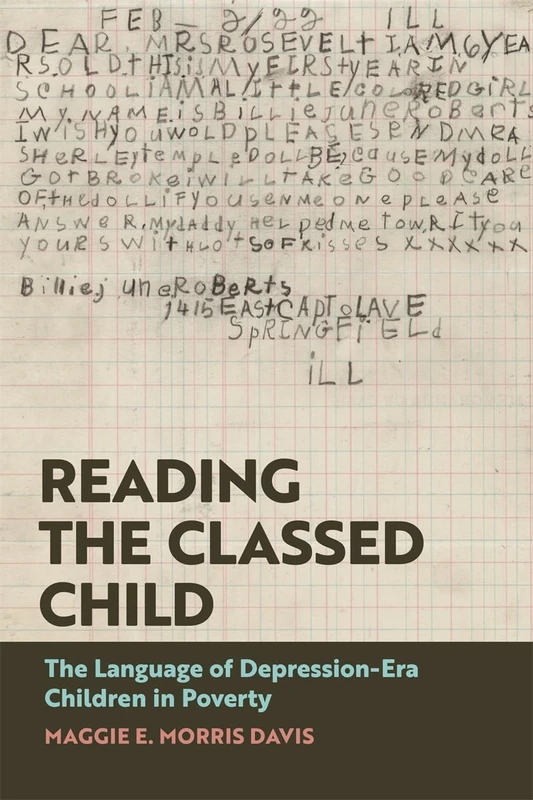 FEB _ 2/22 ILL
DEAR. MRSROSEVELt I.A.M.6YEA
RS.OLD.tHISiSMyFIRStyEARIN
SCHOOLiAMALittLE/COLOREDGiRL
My.NAME.iSBILLiejuneRoBerts
INiSHyOuWOLDpLEASESENDMEA
SHeRLEytempLeDOLLBEcauSEMydoLL
GOtBROKeiWiLLtAKeGOODCARe
OFtHedOLLiFYOuSenMeONepLeASe
ANSWeR.MydAddyHeLpedMetOWRItyou
yOURSWitHLOtSoFKisseSXXXXXX
Billiej uneRoBerts
1415EAStCAPtoLAVE
SpRiNGFiELd
iLL
READING
THE CLASSED
CHILD
The Language of Depression-Era
Children in Poverty
MAGGIE E. MORRIS DAVIS